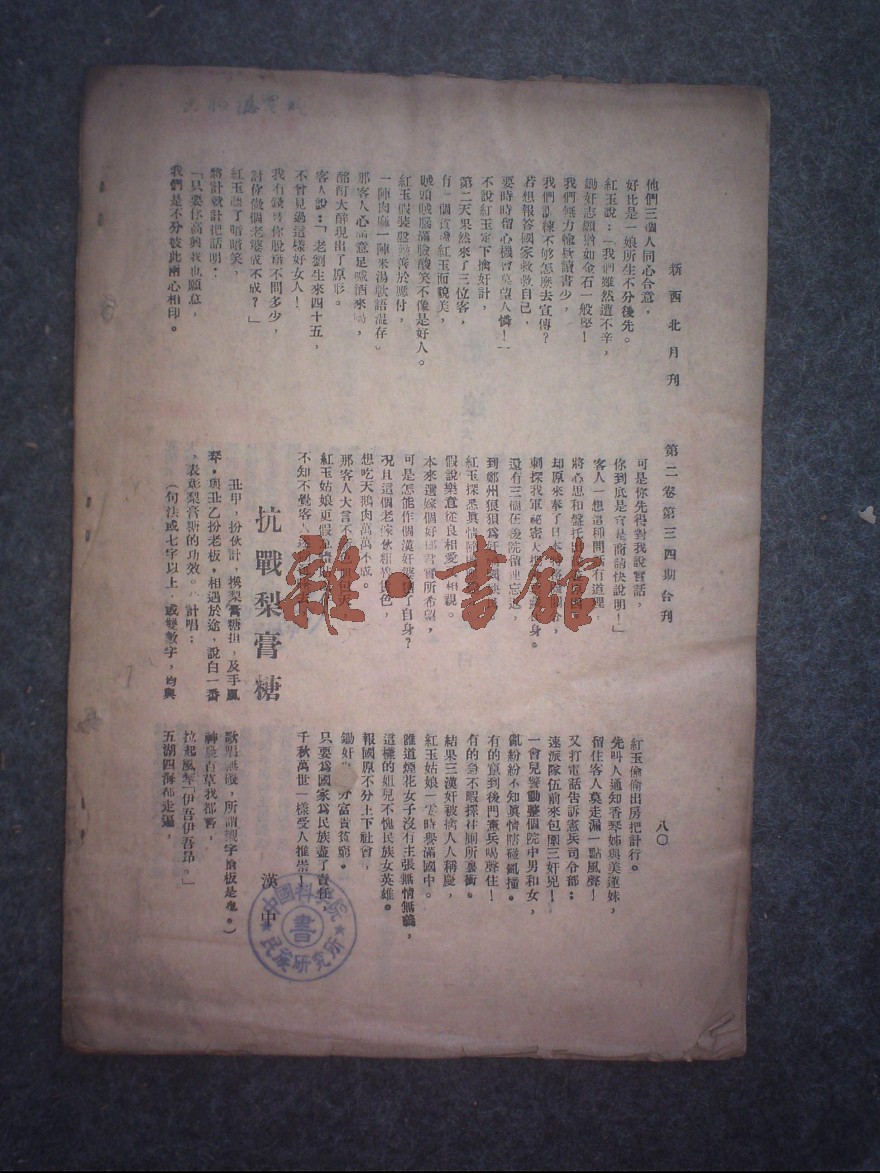 新西北月刊 第二卷第三四期合刊 八〇
他們三個人同心合意，
好比是一娘所生不分後先。
紅玉說：「我們雖然遭不辛，
鋤奸志願猶如金石一般堅！
我們無力 讀書少，
我們訓練不够怎麽去宣傳？
若想報答國家救 自己，
要時時留心機 莫望人憐！」
不說紅玉定下擒奸計，
第二天果然來了三位客，
有一個 紅玉而貌美，
賊頭賊腦滿臉酸笑不像是好人。
紅玉假裝 善於應付，
一陣肉麻一陣米湯軟語溫存。
那客人心滿意足喊酒來喝，
酩酊大醉現出了原形。
客人說：「老劉生來四十五，
不曾見過這樣好女人！
我有錢替你脫籍不問多少，
討你做個老婆成不成？」
紅玉聽了暗暗笑，
將計就計把話明：
「只要你高興我也願意，
我們是不分彼此兩心相印。
可是你先得對我說實話，
你到底是官是商請快說明！」
客人一想這種問話有道理，
將心思和盤托出
却原來奉了日
刺探我軍祕密大 身。
還有三個在後院
到鄭州狠狽為奸
紅玉探悉真情
假說樂意從良相愛 相親。
本來選嫁個好郎君實所希望，
可是怎能作個漢奸婆 了自身？
况且這個老傢伙粗 貨色，
想吃天鵝肉萬萬不成。
那客人大言不
紅玉姑娘更假
不知不覺客人
紅玉偷偷出房把計行。
先叫人通知香琴姊與美蓮妹，
留住客人莫走漏一點風聲！
又打電話告訴憲兵司令部：
速派隊伍前來包圍三奸兇！
一會兒警動整個院中男和女，
亂紛紛不知真情瞎碰亂撞。
有的竄到後門憲兵喝聲住！
有的急不暇擇往厠所裏衝。
結果三漢奸被捕人人稱慶，
紅玉姑娘一霎時譽滿國中。
誰道煙花女子沒有主張無情無義，
這樣的姐兒不愧民族女英雄。
報國原不分上下社會，
鋤奸 分富貴貧窮。
只要為國家為民族盡了責任，
千秋萬世一樣受人推崇！
抗戰梨膏糖
漢中
丑甲，扮伙計，携梨膏糖担，及手風
琴，與丑乙扮老板，相遇於途，說白一番
，表彰梨膏糖的功效。 計唱：
（句法或七字以上，或雙數字，均與
歌唱無礙，所謂搶字搶板是也。）
神農百草我都嘗，
拉起風琴「伊吾伊吾昂。」
五湖四海都走遍，
中國科學院
民族研究所
書
雜·書館